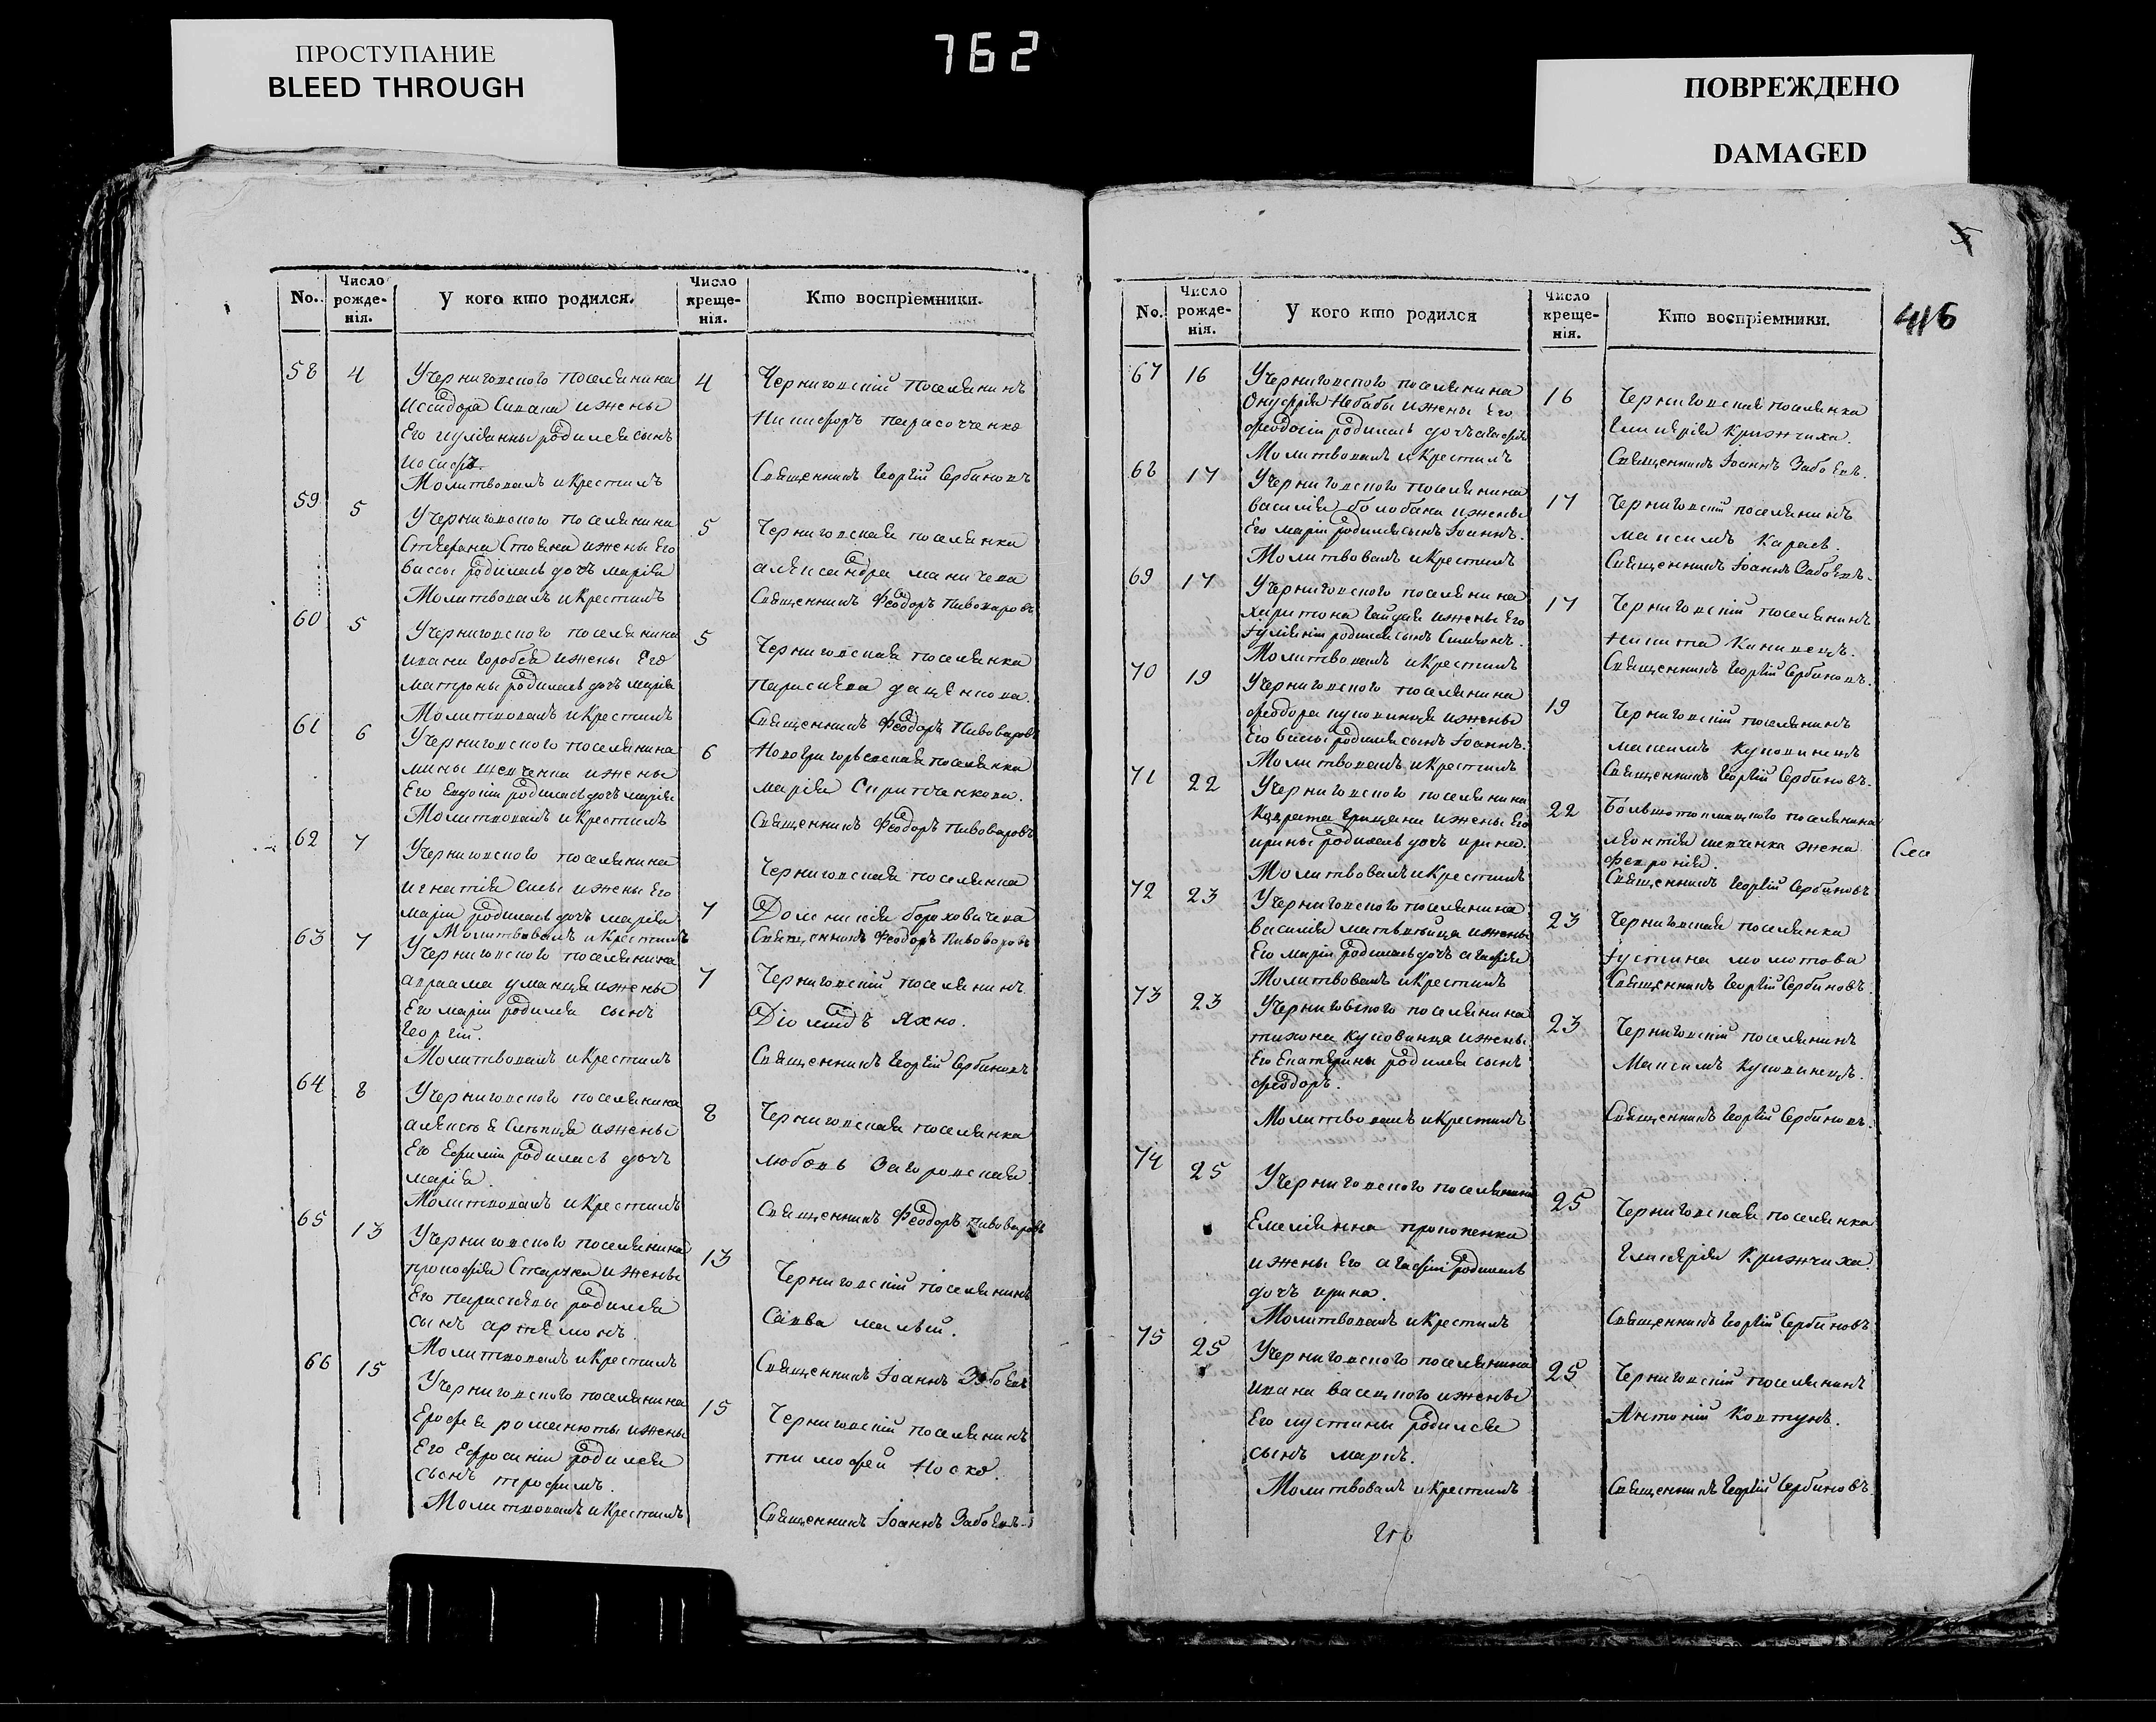 ПРОСТУПАНИЕ
BLEED THROUGH
762
ПОВРЕЖДЕНО
DAMAGED
5
416
No. Число рожде-нія. У кого кто родился. Число креще-нія. Кто воспріемники.
58 4 У Черниговского поселянина 4 Черниговскій поселянинъ
Исидора и жены Никифоръ Парасоченко
Его Иулианны родился сынъ
Иосифъ.
Молитвовалъ и Крестилъ Священникъ Георгій Сербиновъ
59 5 У Черниговского поселянина 5 Черниговская поселянка
Стефана Стояна и жены Его Александра Маничева
Вассы родилась дочь Марія
Молитвовалъ и Крестилъ Священникъ Феодоръ Пивоваровъ
60 5 У Черниговского поселянина 5 Черниговская поселянка
Ивана Горобея и жены Его Параскева
Матроны родилась дочь Марія
Молитвовалъ и Крестилъ Священникъ Феодоръ Пивоваровъ
61 6 У Черниговского поселянина 6 Новогригорьевская поселянка
Мины Шевченка и жены Марія
Его Евдокіи родилась дочь Марія
Молитвовалъ и Крестилъ Священникъ Феодоръ Пивоваровъ
62 7 У Черниговского поселянина 7 Черниговская поселянка
Игнатія и жены Его Домникія
Маріи родилась дочь Марія
Молитвовалъ и Крестилъ Священникъ Феодоръ Пивоваровъ
63 7 У Черниговского поселянина 7 Черниговскій поселянинъ
Авраама Уманця и жены Діомидъ Яхно.
Его Маріи родился сынъ
Георгій.
Молитвовалъ и Крестилъ Священникъ Георгій Сербиновъ
64 8 У Черниговского поселянина 8 Черниговская поселянка
Алексѣя и жены Любовь Загоровская
Его Ефиміи родилась дочь
Марія.
Молитвовалъ и Крестилъ Священникъ Феодоръ Пивоваровъ
65 13 У Черниговского поселянина 13 Черниговскій поселянинъ
Прокофія и жены Савва Малый.
Его Параскевы родился
сынъ Артемонъ.
Молитвовалъ и Крестилъ Священникъ Іоаннъ Забоевъ
66 15 У Черниговского поселянина 15 Черниговскій поселянинъ
Ерофея Романюты и жены Тимофей Носко.
Его Ефросиніи родился
сынъ Трофимъ.
Молитвовалъ и Крестилъ Священникъ Іоаннъ Забоевъ
No. Число рожде-нія. У кого кто родился Число креще-нія. Кто воспріемники.
67 16 У Черниговского поселянина 16 Черниговская поселянка
Онуфрія Небабы и жены Его Гликерія Крижчиха.
Феодосіи родилась дочь Агафія
Молитвовалъ и Крестилъ Священникъ Іоаннъ Забоевъ.
68 17 У Черниговского поселянина 17 Черниговскій поселянинъ
Василія Болобана и жены Максимъ Карась.
Его Маріи родился сынъ Іоаннъ.
Молитвовалъ и Крестилъ Священникъ Іоаннъ Забоевъ.
69 17 У Черниговского поселянина 17 Черниговскій поселянинъ
Харитона Гайдая и жены Его Никита
Іуліяніи родился сынъ Симеонъ.
Молитвовалъ и Крестилъ Священникъ Георгій Сербиновъ.
70 19 У Черниговского поселянина 19 Черниговскій поселянинъ
Феодора Куповинця и жены Максимъ Куповинецъ
Его Вассы родился сынъ Іоаннъ.
Молитвовалъ и Крестилъ Священникъ Георгій Сербиновъ.
71 22 У Черниговского поселянина 22 Большотокмацкого поселянина
Кодрата Грицаня и жены Его Леонтія Шевченка жена
Ирины родилась дочь Ирина. Февронія.
Молитвовалъ и Крестилъ Священникъ Георгій Сербиновъ
72 23 У Черниговского поселянина 23 Черниговская поселянка
Василія и жены Іустина Молотова
Его Маріи родилась дочь Агафія
Молитвовалъ и Крестилъ Священникъ Георгій Сербиновъ.
73 23 У Черниговского поселянина 23 Черниговскій поселянинъ
Тихона Куповинця и жены Максимъ Куповинецъ.
Его Екатерины родился сынъ
Феодоръ.
Молитвовалъ и Крестилъ Священникъ Георгій Сербиновъ.
74 25 У Черниговского поселянина 25 Черниговская поселянка
Емеліянна Прокопенка Гликерія Крижчиха.
и жены Его Агафіи родилась
дочь Ирина.
Молитвовалъ и Крестилъ Священникъ Георгій Сербиновъ
75 25 У Черниговского поселянина 25 Черниговскій поселянинъ
Ивана Васецкого и жены Антоній Ковтунъ.
Его Иустины родился
сынъ Маркъ.
Молитвовалъ и Крестилъ Священникъ Георгій Сербиновъ